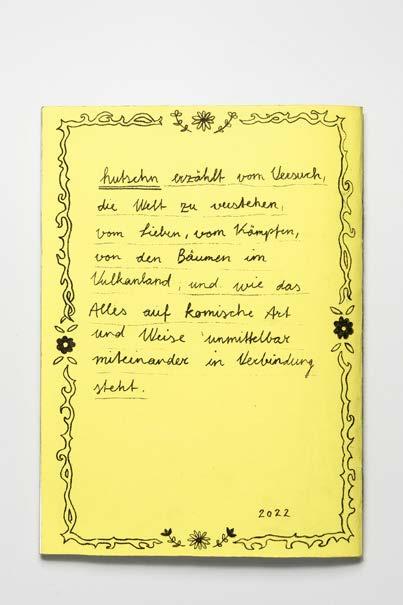 hutschn erzählt vom Versuch,
die Welt zu verstehen,
vom Lieben, vom Kämpfen,
von den Bäumen im
Vulkanland, und wie das
Alles auf komische Art
und Weise unmittelbar
miteinander in Verbindung
steht.
2022